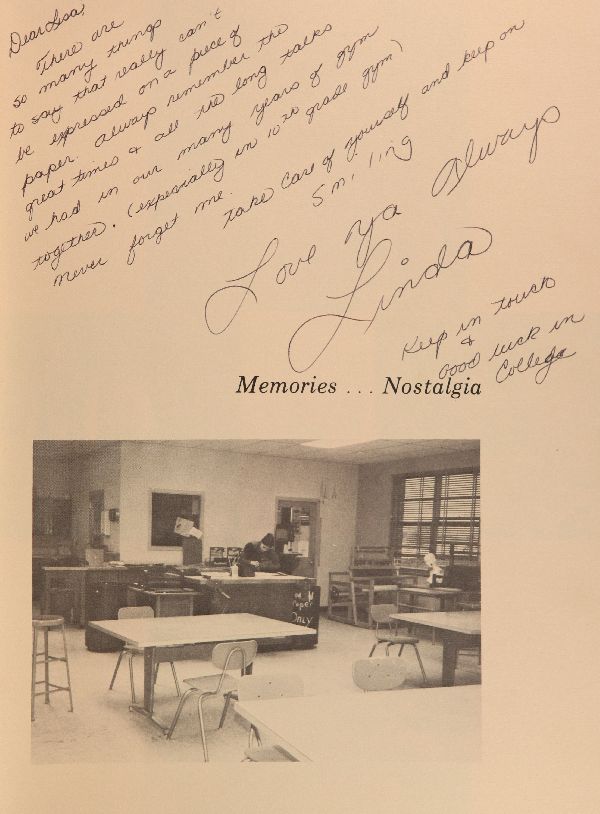 Dear Lisa,
There are
so many things
to say that really can't
be expressed on a piece of
paper. Always remember the
great times & all the long talks
we had in our many years of gym
together. (expecially in 10th grade gym)
Never forget me.
Take care of yourself and keep on
Smiling
Love Ya Always
Linda
Keep in touch
&
Good luck in
College
Memories . . . Nostalgia
Paper
Only